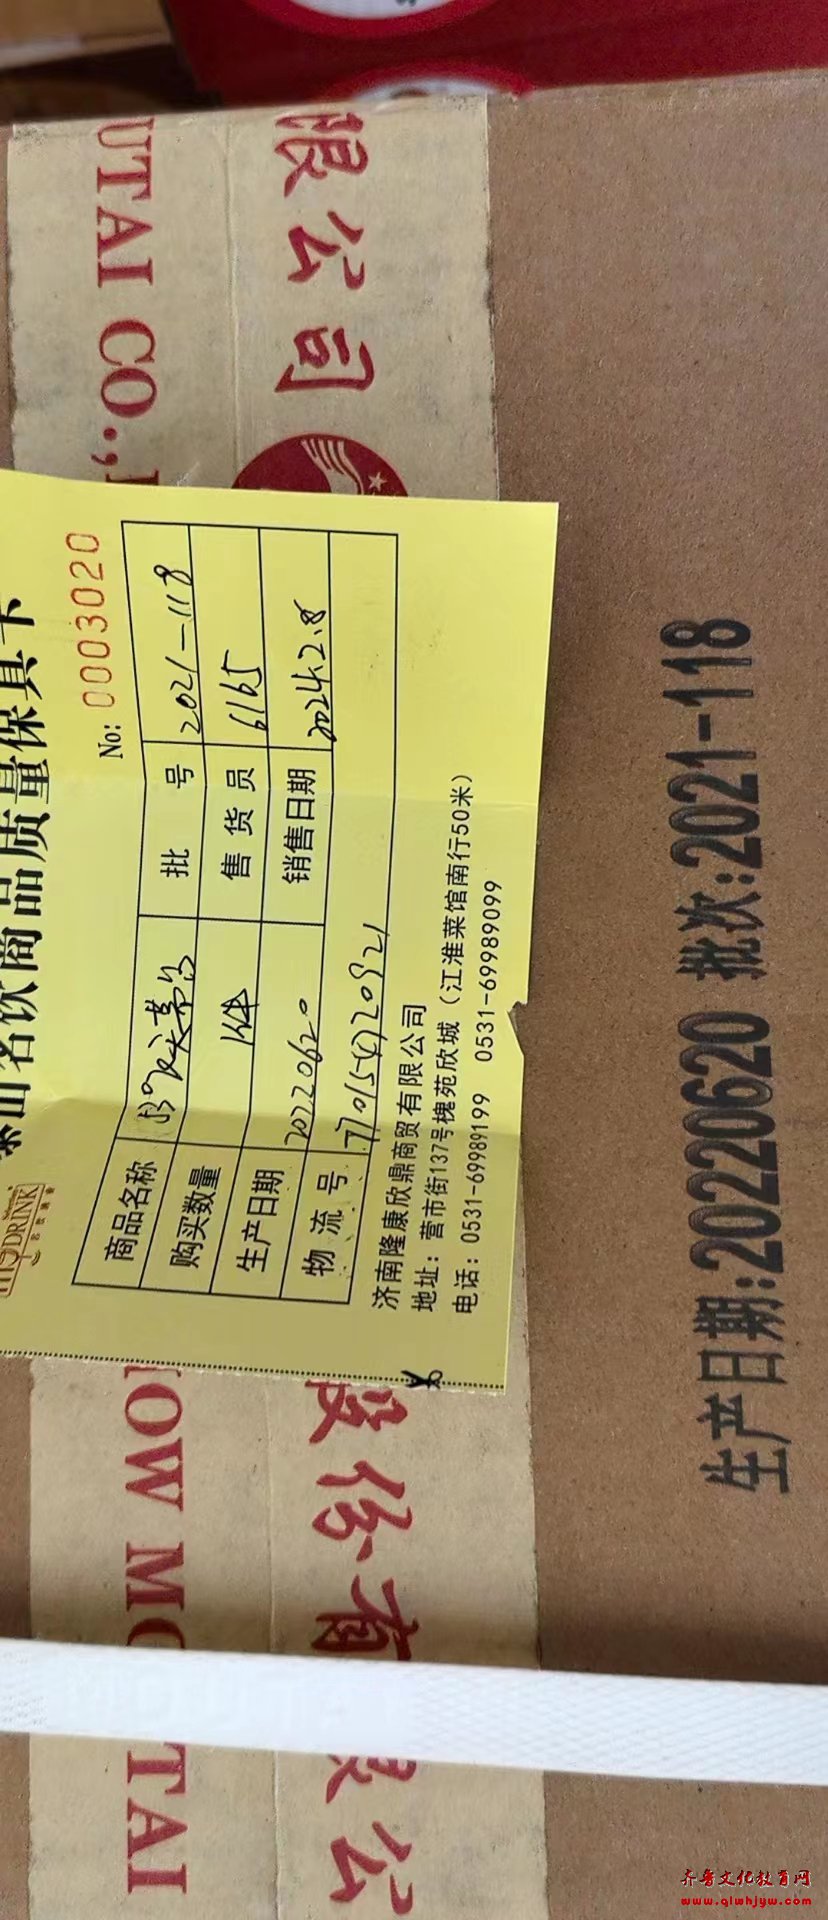 限公司
UTAI CO.,
泰山名饮商品质量保真卡
DRINK
No: 0003020
商品名称 53°飞天茅台 批号 2021-118
购买数量 1件 售货员 6165
生产日期 20220620 销售日期 2024.2.8
物流号
济南隆康欣鼎商贸有限公司
地址：营市街137号槐苑欣城（江淮菜馆南行50米）
电话：0531-69989199 0531-69989099
生产日期:20220620 批次:2021-118
股份有限公
HOW MOUTAI
齐鲁文化教育网
www.qlwhjyw.com